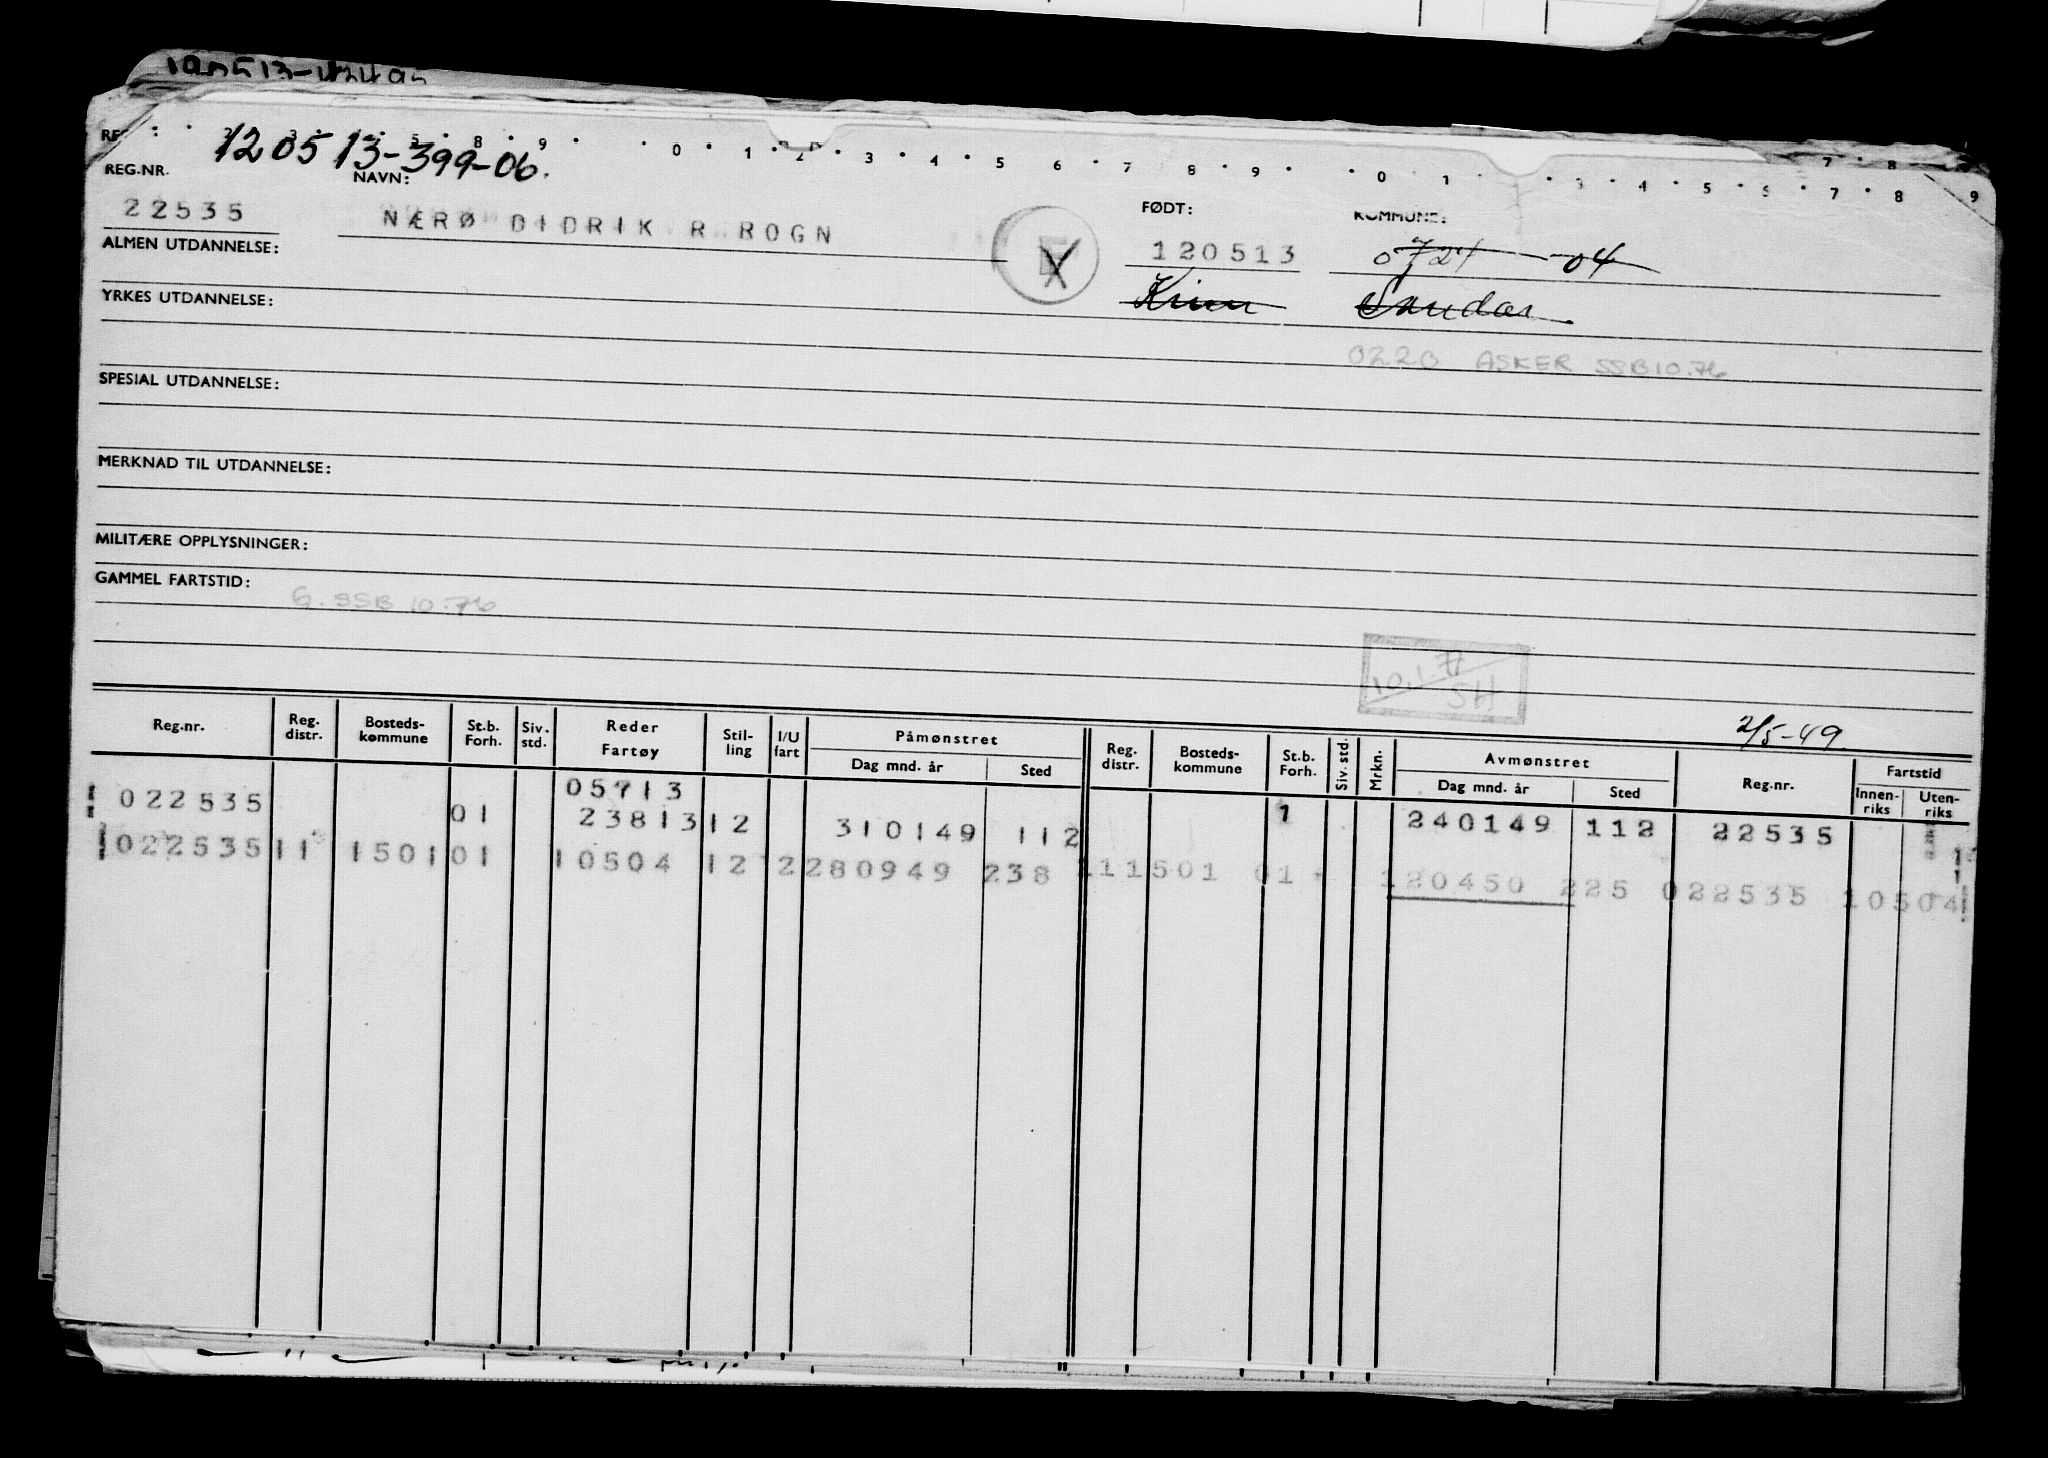 120513-399-06.
REG.NR. NAVN: FØDT: KOMMUNE:
22535 NÆRØ DIDRIK R ROGN 120513 0724 - 04
ALMEN UTDANNELSE:
Kinn Sandar
YRKES UTDANNELSE:
0220 ASKER SSB 10.76
SPESIAL UTDANNELSE:
MERKNAD TIL UTDANNELSE:
MILITÆRE OPPLYSNINGER:
GAMMEL FARTSTID:
G. SSB 10.76
10.1.77
SH
2/5-49
Reg.nr. Reg. distr. Bosteds-kommune St.b. Forh. Siv. std. Reder Fartøy Stil-ling I/U fart Påmønstret Dag mnd. år Sted Reg. distr. Bosteds-kommune St.b. Forh. Siv. std. Mrkn. Avmønstret Dag mnd. år Sted Reg.nr. Fartstid Innen-riks Uten-riks
05713
022535 01 23813 12 310149 112 1 240149 112 22535
022535 11 1501 01 10504 12 2 280949 238 11 1501 01 120450 225 022535 10504